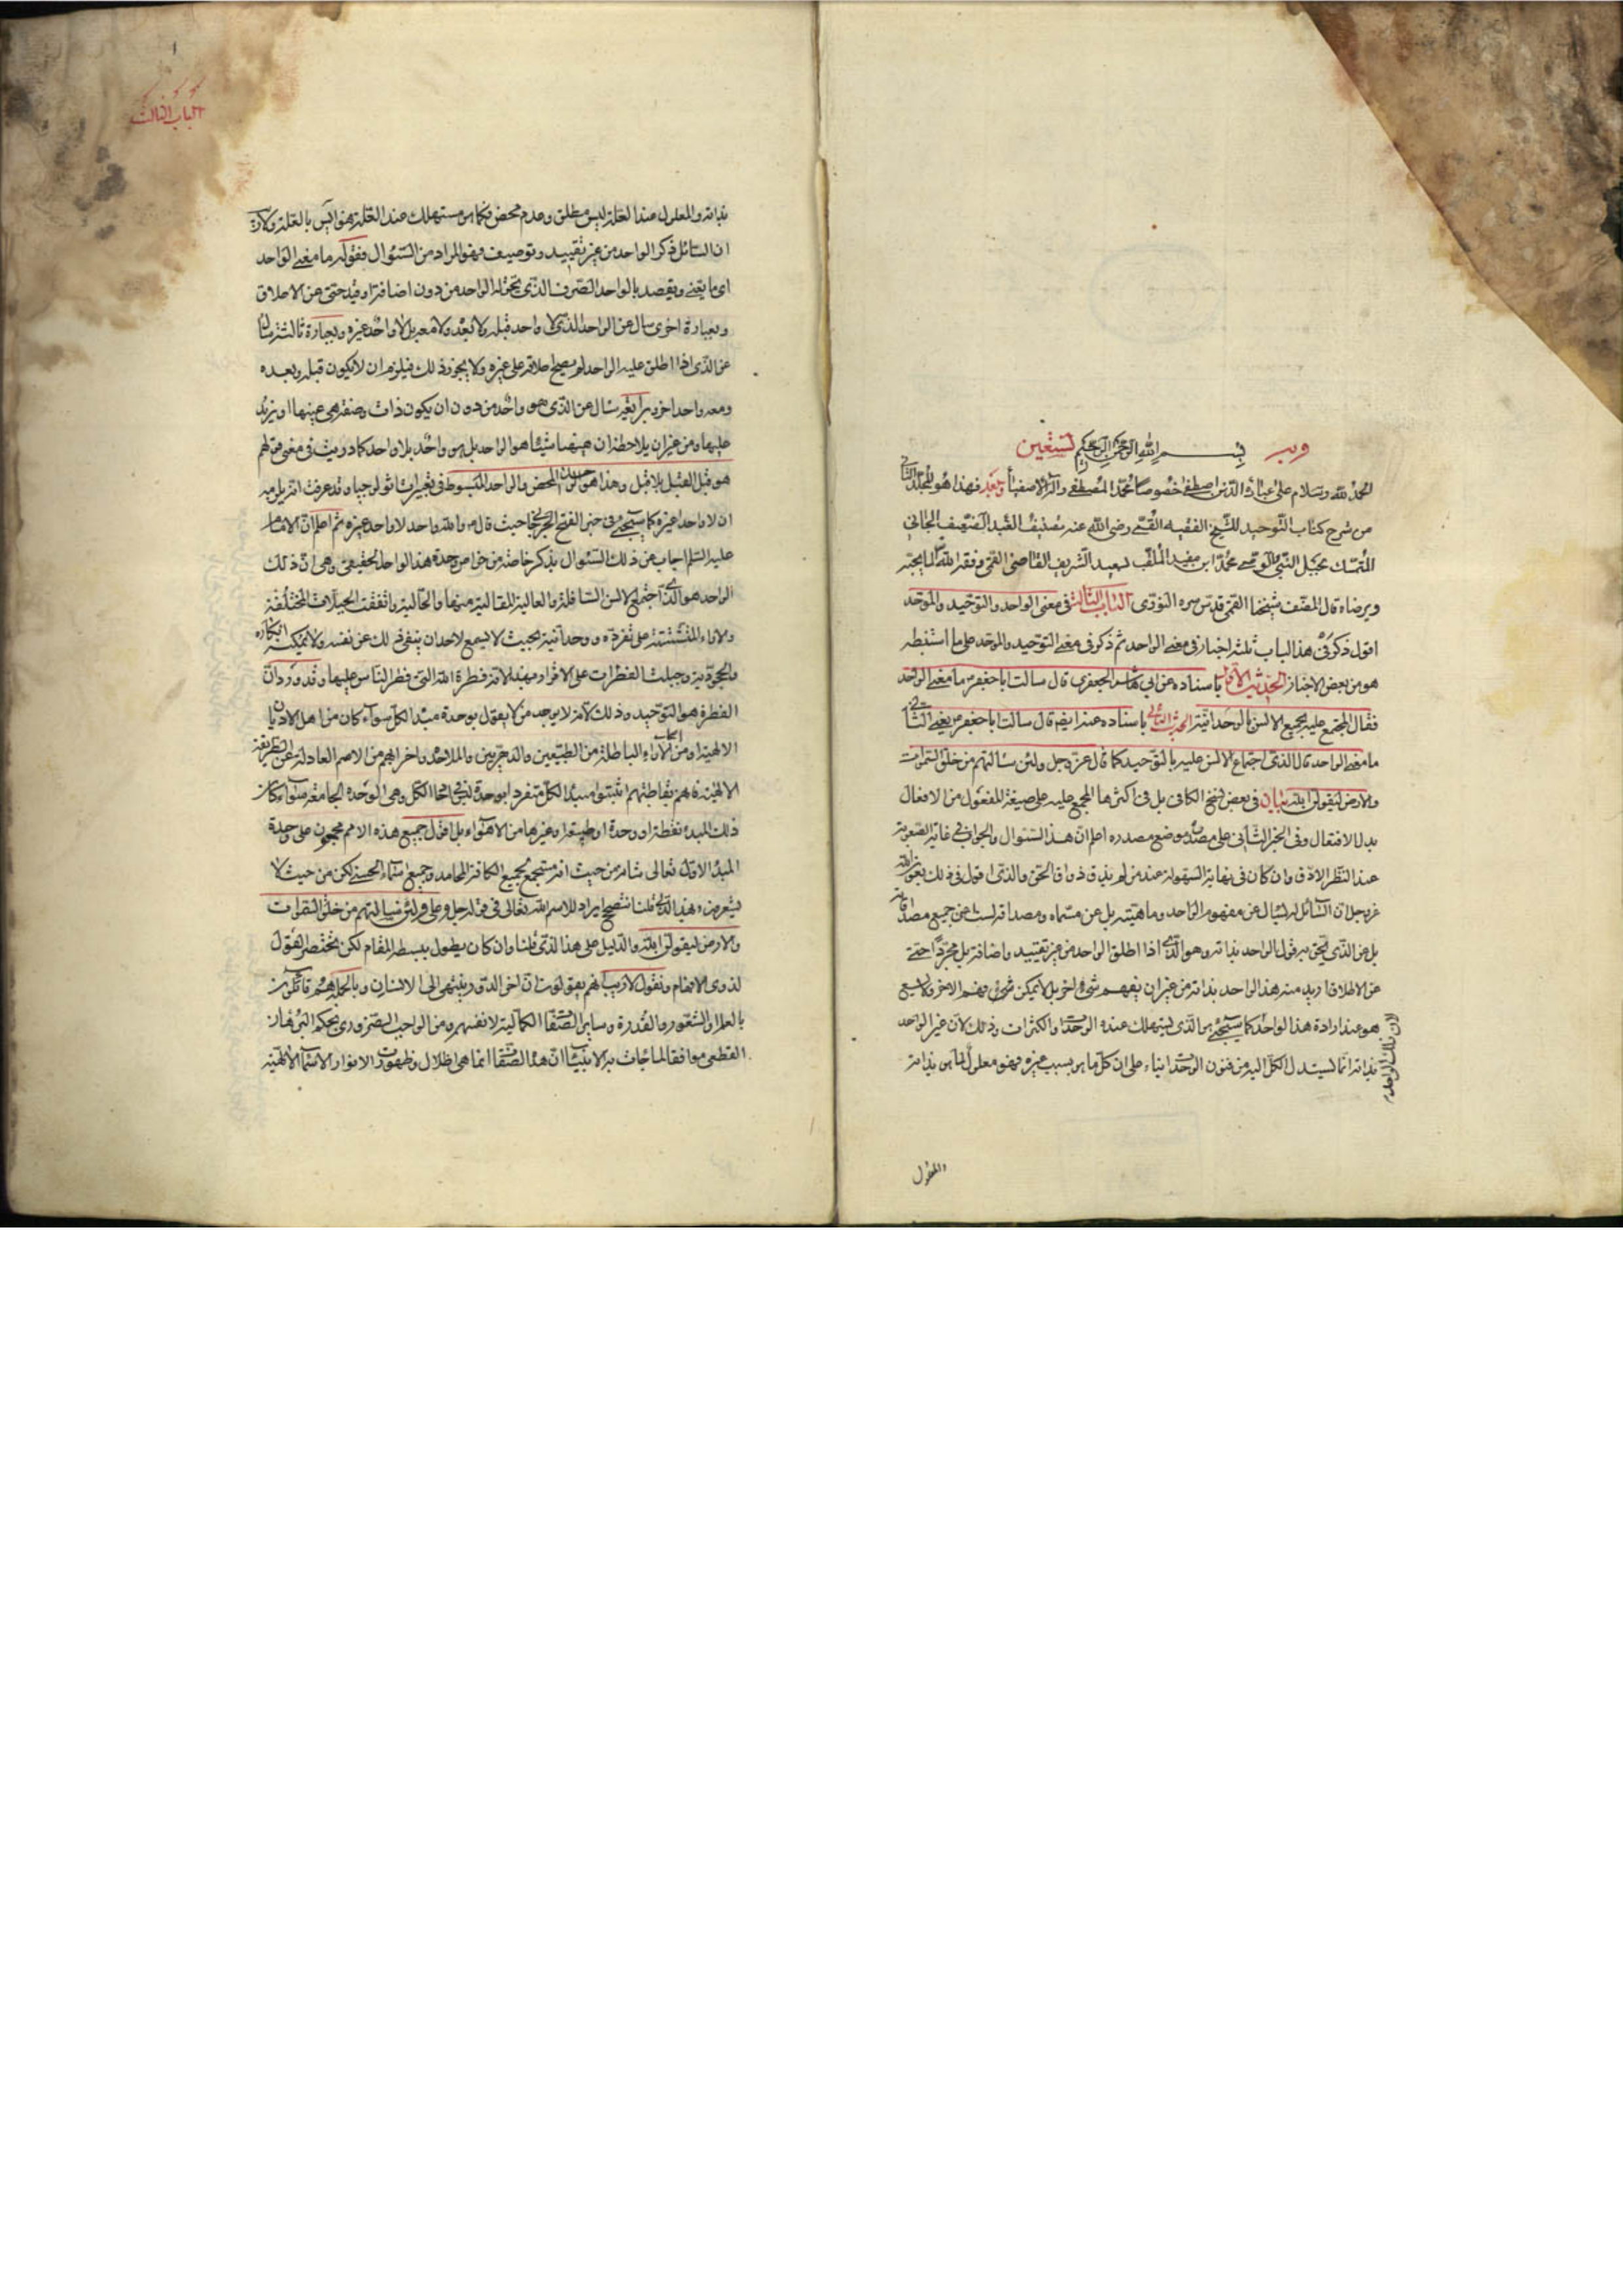 وبه بسم الله الرحمن الرحيم نستعين
الحمد لله وسلام على عباده الذين اصطفى خصوصا محمد المصطفى وآله الاصفياء وبعد فهذا هو المجلد الثاني
من شرح كتاب التوحيد للشيخ الفقيه القمي رضي الله عنه تصنيف العبد الضعيف الجاني
المتمسك بحبل النبي والوصي محمد ابن مفيد الملقب بسعيد الشريف القاضي القمي وفقه الله لما يحبه
ويرضاه قال المصنف شيخنا القمي قدس سره النوري الباب الثالث في معنى الواحد والتوحيد والموحد
اقول ذكر في هذا الباب ثلثة اخبار في معنى الواحد ثم ذكر في معنى التوحيد والموحد على ما استنبطه
هو من بعض الاخبار الحديث الاول باسناده عن ابي هاشم الجعفري قال سالت ابا جعفر ما معنى الواحد
فقال المجتمع عليه بجميع الالسن بالوحدانية الحديث الثاني باسناده عنه ايضا قال سالت ابا جعفر يعني الثاني
ما معنى الواحد قال الذي اجتماع الالسن عليه بالتوحيد كما قال عز وجل ولئن سالتهم من خلق السموات
والارض ليقولن الله بيان في بعض نسخ الكافي بل في اكثرها المجمع عليه على صيغة المفعول من الافعال
بدل الافتعال وفي الخبر الثاني على مصدر موضع مصدره اعلم ان هذا السئوال والجواب في غاية الصعوبة
عند النظر الادق وان كان في نهاية السهولة عند من لم يذق ذواق الحق والذي اقول في ذلك بعون الله
عز وجل ان السائل لم يسال عن مفهوم الواحد وما هيته بل عن مسماه ومصداقه لست اعني جميع مصداقاته
بل عن الذي يحق به قول الواحد بذاته وهو الذي اذا اطلق الواحد من غير تقييد واضافة بل مجردا حتى
عن الاطلاق اريد منه هذا الواحد بذاته من غير ان يفهم شيء اخر بل لا يمكن فهم الاخر ولا يسع
هو عند ارادة هذا الواحد كما سيجئ هو الذي يستهلك عنده الوحدات والكثرات وذلك لان غير الواحد
بذاته انما يستدل الكل اليه من فنون الوحدات بناء على ان كل ما هو بسبب غيره فهو معلول لما هو بذاته
والمعلول
الباب الثالث
بذاته والمعلول عند العلة ليس مطلق وعدم محض وكما هو مستهلك عند العلة هو ايس بالعلة ولان
ان السائل ذكر الواحد من غير تقييد وتوصيف فهو المراد من السئوال فقوله ما معنى الواحد
اي ما يعني ويقصد بالواحد الصرف الذي يحق له الواحد من دون اضافة او قيد حتى عن الاطلاق
وبعبارة اخرى سال عن الواحد الذي لا واحد قبله ولا بعده ولا معه بل لا واحد غيره وبعبارة ثالثة سال
عن الذي اذا اطلق عليه الواحد لم يصح اطلاقه على غيره ولا يجوز ذلك فيلزم ان لا يكون قبله وبعده
ومعه واحد اخر سال عن الذي هو واحد من دون ان يكون ذات وصفة هي عينها او يزيد
عليها ومن غير ان يلاحظ ان هيهنا شيئا هو الواحد بل هو واحد بلا واحد كما دريت في معنى قولهم
هو قبل القبل بلا قبل وهذا هو المحض والواحد المبسوط في تعبيرات اثولوجيا وقد عرفت انه يلزمه
ان لا واحد غيره كما سيجئ في خبر الفتح الجرجاني حيث قال والله واحد لا واحد غيره ثم اعلم ان الامام
عليه السلم اجاب عن ذلك السئوال بذكر خاصة من خواص وحدة هذا الواحد الحقيقي وهي ان ذلك
الواحد هو الذي اجتمع الالسن السافلة والعالية المقالية منها والحالية واتفقت الجبلات المختلفة
والاراء المتشتتة على تفرده ووحدانيته بحيث لا يسع لاحد ان ينفي ذلك عن نفسه ولا يمكنه انكاره
والجحود به وجبلت الفطرات على الاقرار بهذا لانه فطرة الله التي فطر الناس عليها وقد ورد ان
الفطرة هو التوحيد وذلك لانه لا يوجد من لا يقول بوحدة مبدا الكل سواء كان من اهل الاديان
الالهية او من الاراء الباطلة من الطبيعيين والدهريين والملاحدة واخرابهم من الامم العادلة عن الطريقة
الالهية فانهم بقاطبتهم اثبتوا مبدا الكل متفردا بوحدة ينبغي لمبدا الكل وهي الوحدة الجامعة سواء كان
ذلك المبدء نقطة او وحدة او طبيعة او غيرها من الاهواء بل اقول جميع هذه الامم مجمعون على وحدة
المبدا الاول تعالى شانه من حيث انه مستجمع لجميع الكافة المحامد وجميع اسماء الحسنى لكن من حيث لا
يشعرون ولهذا الذي قلنا تصحيح ايراد للاسم الله تعالى في قوله جل وعلى ولئن سالتهم من خلق السموات
والارض ليقولن الله والدليل على هذا الذي قلنا وان كان يطول ببسطه المقام لكن نختصر القول
لذوي الافهام ونقول لا ريب انهم يقولون ان اخر الدور ينتهي الى الانسان وبالجملة هم قائلون
بالعلم والشعور والقدرة وساير الصفات الكمالية لانفسهم ومن الواجب الضروري بحكم البرهان
القطعي موافقا لما جاءت به الانبياء ان هذه الصفات انما هي اظلال وظهورات الانوار الاسماء الالهية